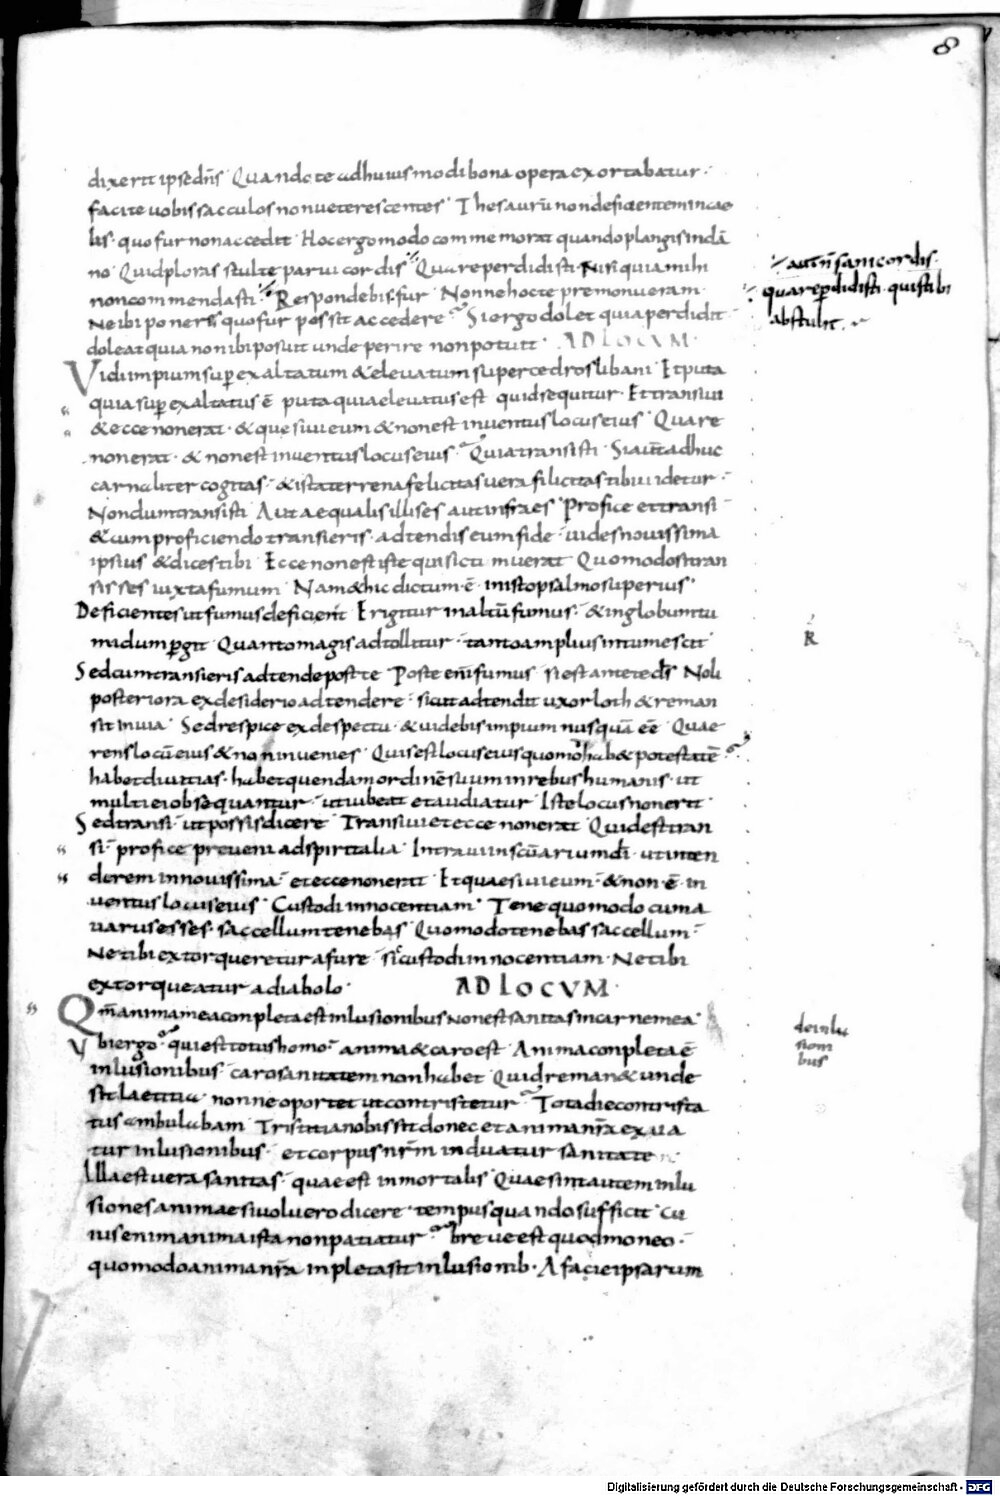 8
dixerit ipse dñs Quando te ad huius modi bona opera exortabatur·
facite uobis sacculos non ueterescentes Thesaurū non deficientem in cae
lis· quo fur non accedit Hoc ergo modo commemorat quando plangis in dā
no Quid ploras stulte parui cordis Quare perdidisti Nisi quia mihi
non commendasti Respondebis fur Nonne hoc te premonueram
Ne ibi poneres quo fur possit accedere Si ergo dolet quia perdidit
doleat quia non ibi posuit unde perire non potuit · AD LOCVM·
·/· aut̄ sani cordis·
quare ꝑdidisti· quis tibi
abstulit·
Vidi impium suꝑexaltatum & eleuatum super cedros libani Et puta
quia suꝑexaltatus ē puta quia eleuatus est quid sequitur· Et transiui
& ecce non erat· & quesiui eum & non est inuentus locus eius Quare
non erat· & non est inuentus locus eius Quia transisti Si aut̄ adhuc
carnaliter cogitas· & ista terrena felicitas uera filicitas tibi uidetur·
Nondum transisti Aut aequalis illi es aut infra es Profice et transi
& cum proficiendo transieris· adtendis eum fide uides nouissima
ipsius & dices tibi Ecce non est iste qui sic tumuerat Quomodo si tran
sisses iuxta fumum Nam & hic dictum ē in isto psalmo superius·
Deficientes ut fumus deficient Erigitur in altū fumus· & in globum tu
midum ꝑgit Quanto magis adtollitur· tanto amplius intumescit
R
Sed cum transieris adtende post te Post te eni fumus si est ante te ds Noli
posteriora ex desiderio adtendere· sicut adtendit uxor loth & reman
sit in uia Sed respice ex despectu· & uidebis impium nusquā eē Quae
rens locū eius & non inuenies Quis est locus eius quomodo hab& potestatē
habet diuitias· habet quendam ordinē suum in rebus humanis· ut
multi ei obsequantur· ut iubeat et audiatur Iste locus non erit
Sed transi· ut possis dicere Transiui et ecce non erat Quid est tran
si· profice preueni ad spiritalia Intraui in scūarium di· ut inten
derem in nouissima· et ecce non erit Et quaesiui eum· & non ē in
uentus locus eius Custodi innocentiam· Tene quomodo cum a
uarus esses· saccellum tenebas Quomodo tenebas saccellum·
Ne tibi extorqueretur a fure sic custodi innocentiam· Ne tibi
extorqueatur a diabolo· AD LOCVM·
Qm̄ anima mea conpleta est inlusionibus non est sanitas in carne mea·
de inlu
sioni
bus
Vbi ergo· qui est totus homo· anima & caro est Anima conpleta ē
inlusionibus· caro sanitatem non habet Quid reman& unde
sit laetitia nonne oportet ut contristetur Tota die contrista
tus ambulabam Tristitia nobis sit donec et anima nr̄a exua
tur inlusionibus· et corpus nr̄m induatur sanitate
Illa est uera sanitas· quae est inmortalis Quae sint autem inlu
siones animae si uoluero dicere· tempus quando sufficit Cu
ius enim anima ista non patiatur breue est quod moneo·
quomodo anima nr̄a inpleta sit inlusionib· A facie ipsarum
Digitalisierung gefördert durch die Deutsche Forschungsgemeinschaft - DFG